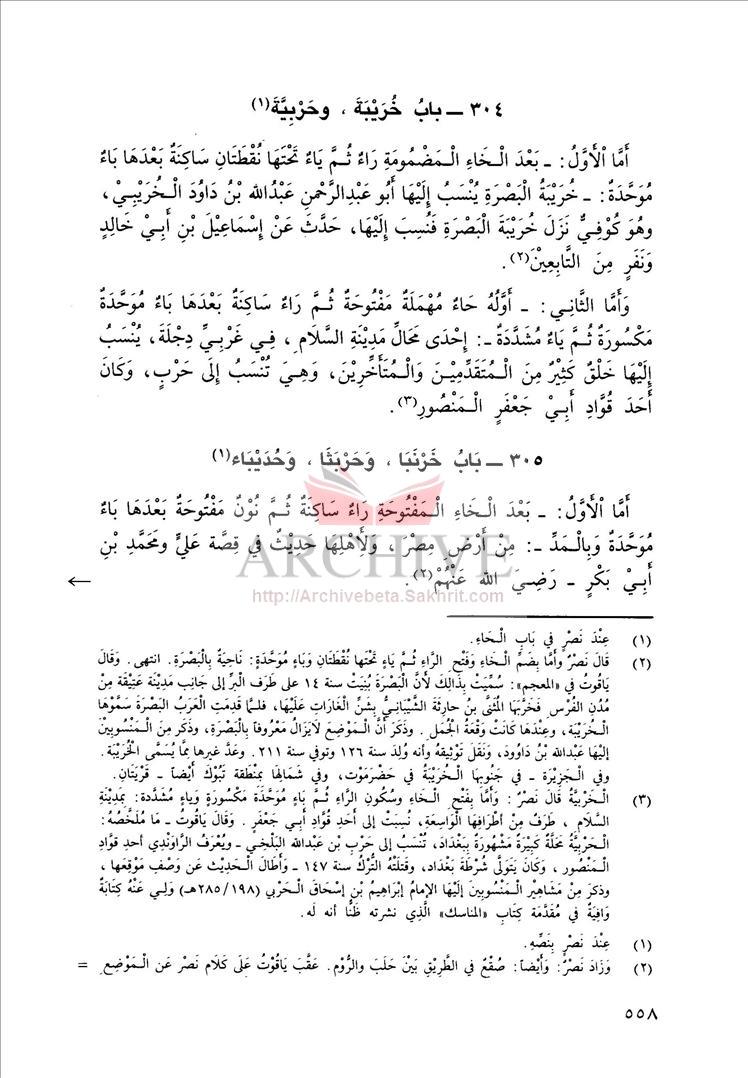 ٣٠٤ ـ بابُ خُرَيْبَةَ ، وحَرْبِيَّةَ(١)
أَمَّا الْأَوَّلُ: ـ بَعْدَ الْـخَاءِ الْـمَضْمُومَةِ رَاءٌ ثُـمَّ يَاءٌ تَحْتَهَا نُقْطَتَانِ سَاكِنَةٌ بَعْدَهَا بَاءٌ
مُوَحَّدَةٌ: ـ خُرَيْبَةُ الْبَصْرَةِ يُنْسَبُ إِلَيْهَا أَبُو عَبْدِالرَّحْمنِ عَبْدُالله بْنُ دَاوُدَ الْـخُرَيْبِـيُّ،
وهُوَ كُوْفِـيٌّ نَزَلَ خُرَيْبَةَ الْبَصْرَةِ فَنُسِبَ إِلَيْهَا، حَدَّثَ عَنْ إِسْمَاعِيْلَ بْنِ أَبِـيْ خَالِدٍ
وَنَفَرٍ مِنَ التَّابِعِيْنَ(٢).
وَأَمَّا الثَّانِـي: ـ أَوَّلُهُ حَاءٌ مُهْمَلَةٌ مَفْتُوحَةٌ ثُـمَّ رَاءٌ سَاكِنَةٌ بَعْدَهَا بَاءٌ مُوَحَّدَةٌ
مَكْسُورَةٌ ثُـمَّ يَاءٌ مُشَدَّدَةٌ ـ: إِحْدَى مَحَالِّ مَدِيْنَةِ السَّلَامِ ، فِـي غَرْبِـيِّ دِجْلَةَ، يُنْسَبُ
إِلَيْهَا خَلْقٌ كَثِيْرٌ مِنَ الْـمُتَقَدِّمِيْـنَ وَالْـمُتَأَخِّرِيْنَ، وَهِـيَ تُنْسَبُ إِلَى حَرْبٍ، وَكَانَ
أَحَدَ قُوَّادِ أَبِـيْ جَعْفَرٍ الْـمَنْصُورِ(٣).
٣٠٥ ـ بَابُ خَرْنَبَا ، وَحَرْبَثَا ، وَحُدَيْبَاء(١)
أَمَّا الْأَوَّلُ: ـ بَعْدَ الْـخَاءِ الْـمَفْتُوحَةِ رَاءٌ سَاكِنَةٌ ثُـمَّ نُوْنٌ مَفْتُوحَةٌ بَعْدَهَا بَاءٌ
مُوَحَّدَةٌ وَبِالْـمَدِّ ـ: مِنْ أَرْضِ مِصْرَ ، وَلِأَهْلِهَا حَدِيْثٌ فِي قِصَّة عَلِيٍّ ومُحَمَّدِ بْنِ
أَبِـيْ بَكْرٍ ـ رَضِـيَ الله عَنْهُمْ(٢). ←
ARCHIVE
http://Archivebeta.Sakhrit.com
(١) عِنْدَ نَصْرٍ فِي بَابِ الْـحَاءِ.
(٢) قَالَ نَصْرٌ وَأَمَّا بِضَمِّ الْـخَاءِ وَفَتْحِ الرَّاءِ ثُـمَّ يَاءٍ تَحْتَها نُقْطَتَانِ وَبَاءٍ مُوَحَّدَةٍ: نَاحِيَةٌ بِالْبَصْرَةِ. انتهى. وَقَالَ
يَاقُوتُ فِي «المعجم»: سُمِّيَتْ بِذَالِكَ لأَنَّ الْبَصْرَةَ بُنِيَتْ سنة ١٤ على طَرَفِ الْبَرِّ إِلى جَانِبِ مَدِيْنَةٍ عَتِيْقَةٍ مِنْ
مُدُنِ الفُرْسِ فَخَرَّبَهَا الْمُثَنَّى بن حَارِثَةَ الشَّيْبَانِـيُّ بِشَنِّ الْغَارَاتِ عَلَيْهَا، فلـمَّا قَدِمَتِ الْعَرَبُ الْبَصْرَةَ سَمَّوْهَا
الْـخُرَيْبَةَ، وعِنْدَهَا كَانَتْ وَقْعَةُ الْجَمَلِ . وذَكَرَ أنَّ الْـمَوْضِعَ لاَيَزَالُ مَعْرُوفاً بِالْبَصْرَةِ، وذَكَرَ مِنَ الْـمَنْسُوبِيْنَ
إِلَيْهَا عَبْدَالله بْنَ دَاوُودَ، وَنَقَلَ تَوْثِيقَهُ وأنه وُلِدَ سنة ١٢٦ وتوفي سنة ٢١١. وعَدَّ غيرها مِمَّا يُسَمَّى الْخُرَيْبَةَ.
وفي الْـجَزِيْرَةِ ـ في جَنُوبِهَا الْـخُرَيْبَةُ في حَضْرَمَوْتَ، وفي شَمَالِهَا بِمنْطَقَةِ تَبُوْكَ أَيْضاً ـ قَرْيَتَانِ.
(٣) الْـحَرْبِيَّةُ قَالَ نَصْرٌ : وَأَمَّا بِفَتْحِ الْـحَاءِ وسُكُونِ الرَّاءِ ثُـمَّ بَاءٍ مُوَحَّدَةٍ مَكْسُورَةٍ وياءٍ مُشَدَّدة: بِمَدِيْنَةِ
السَّلَامِ ، طَرَفٌ مِنْ أَطرَافِهَا الْوَاسِعَةِ، نُسِبَتْ إلى أَحَدِ قُوَّادِ أبـي جَعْفَرٍ . وَقَالَ يَاقُوتُ ـ مَا مُلَخَّصُهُ:
الْـحَرْبِيَّةُ مَحَلَّةٌ كَبِيْرَةٌ مَشْهُورَةٌ بِبَغْدَادَ، تُنْسَبُ إلى حَرْبِ بن عَبْدالله الْبَلْخِـي ـ ويُعْرَفُ الرَّاوَنْدِي أحدِ قوادِ
الْـمَنْصُورِ ، وَكَانَ يَتَوَلَّى شُرْطَةَ بَغْدَادَ، وقَتَلَتْهُ التُّرْكُ سنة ١٤٧ ـ وَأَطَالَ الْـحَدِيْثَ عن وَصْفِ مَوْقِعِهَا ،
وذكرَ مِنْ مَشَاهِيرِ الْـمَنْسُوبِينَ إِلَيْهَا الإمَامَ إبْرَاهِيمَ بْنَ إِسْحَاقَ الْـحَرْبِي (٢٨٥/١٩٨هـ) وَلِـي عَنْهُ كِتَابَةٌ
وَافِيَةٌ في مُقَدَّمَةِ كِتَابِ «المناسك» الَّذِي نشرته ظَنًّا أنه لَه.
(١) عِنْدَ نَصْرٍ بِنَصِّهِ.
(٢) وَزَادَ نَصْرٌ: وَأَيْضاً: صُقْعٌ في الطَّرِيْقِ بَيْنَ حَلَبَ والرُّوْمِ. عَقَّبَ يَاقُوْتُ عَلَى كَلَامِ نَصْرٍ عَنِ الْـمَوْضِعِ =
٥٥٨